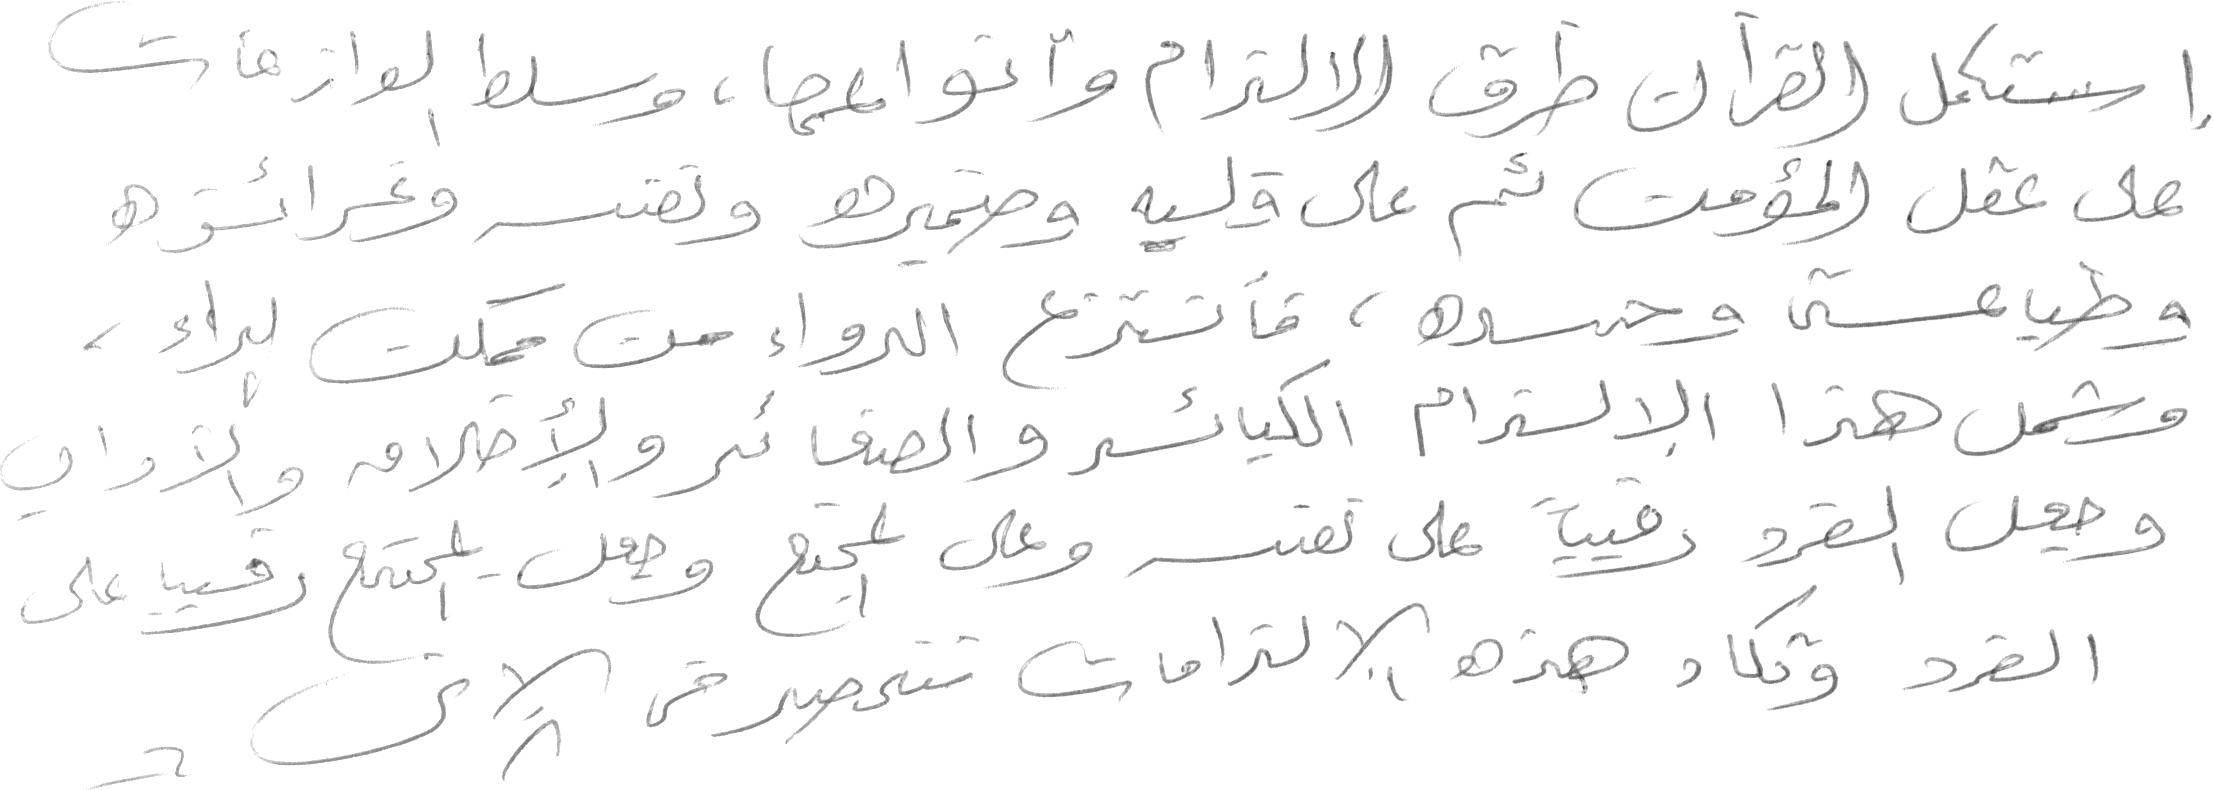 إستكمل القرآن طرق الالتزام وأنواعها، وسلط الوازعات
على عقل المؤمن ثم على قلبه وضميره ونفسه وغرائزه
وطباعه وجسده، فانتزع الدواء من مكمن الداء،
وشمل هذا الإلتزام الكبائر والصغائر والأخلاق والآداب
وجعل الفرد رقيباً على نفسه وعلى المجتمع وجعل المجتمع رقيبا على
الفرد وتكاد هذه الإلتزامات تنحصر في الآتي